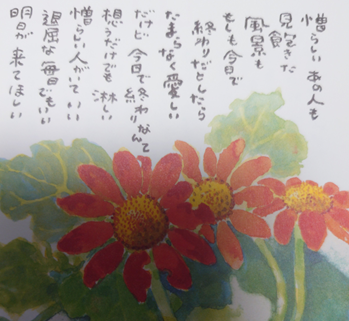 憎らしい あの人も
見飽きた
風景も
もしも今日で
終わりだとしたら
たまらなく愛しい
だけど 今日で終わりなんて
想うだけでも 淋しい
憎らしい人がいていい
退屈な毎日でもいい
明日が来てほしい